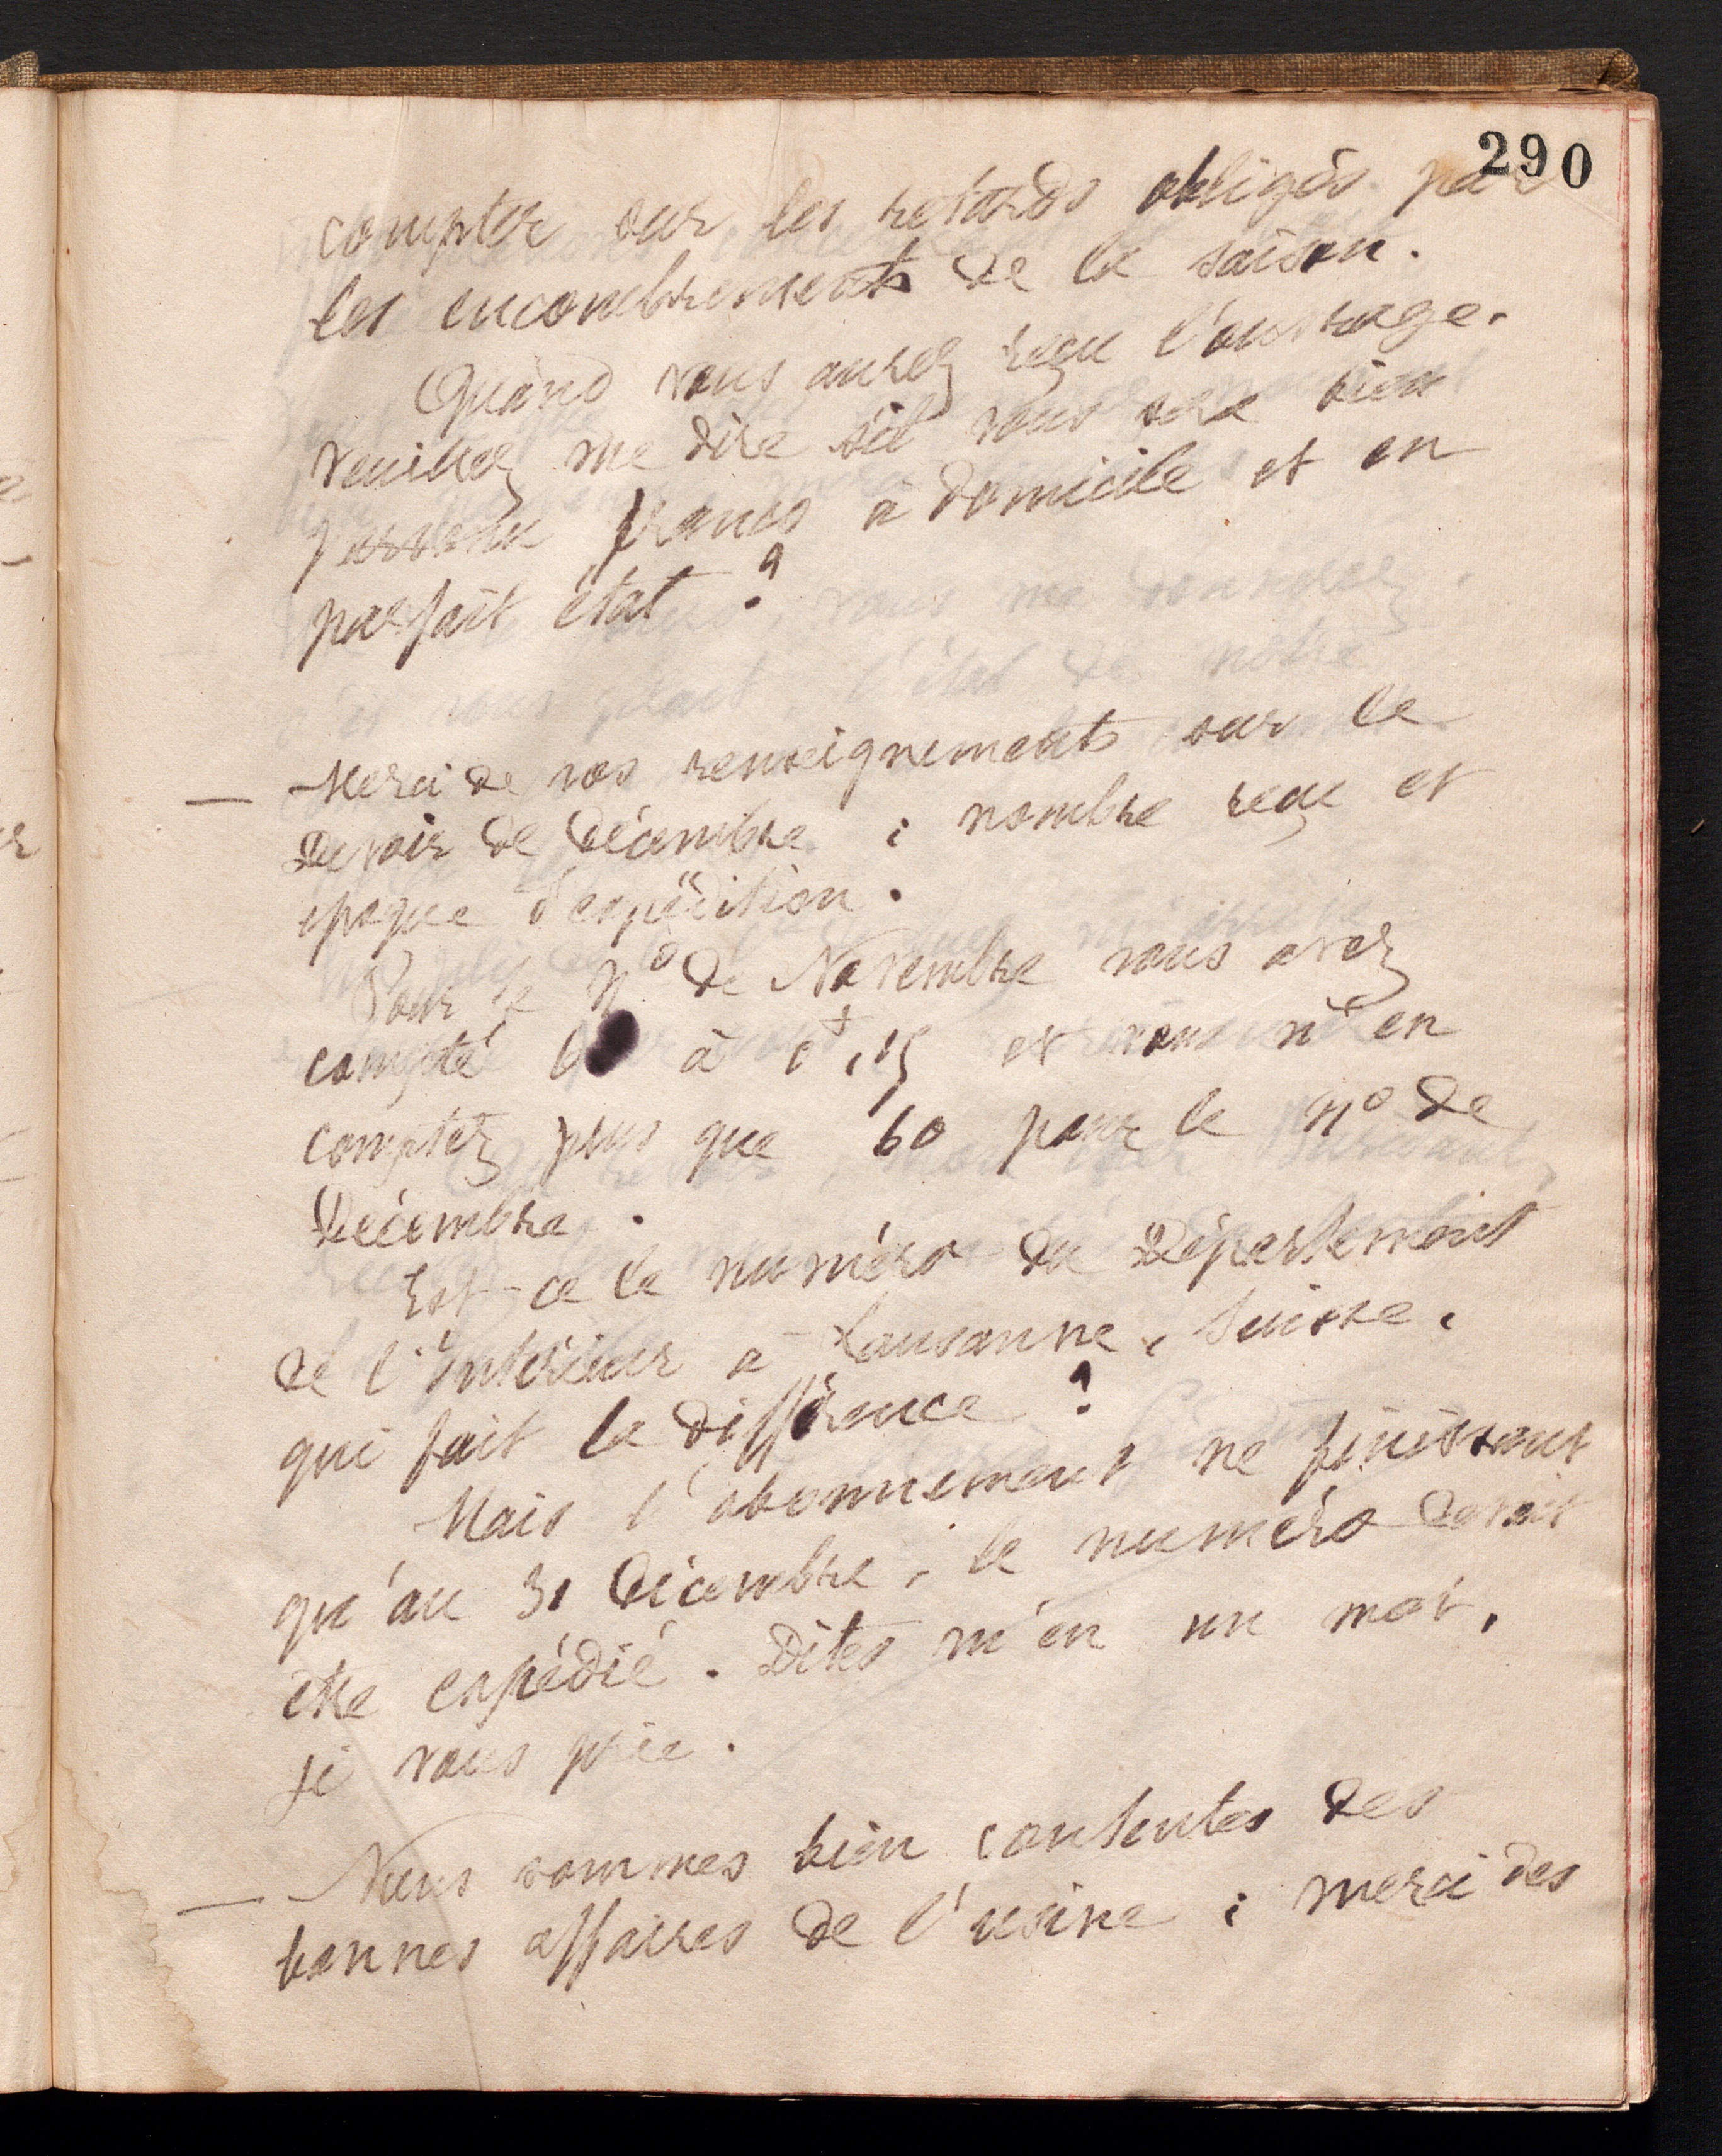 290
compter sur les retards obligés par
les encombrements de la saison.
Quand vous aurez reçu l'ouvrage.
veuillez me dire s'il vous sera bien
parvenu franco à domicile et en
parfait état ?
— Merci de vos renseignements sur le
Devoir de Décembre : nombre reçu et
epoque d'expédition.
Pour le No de Novembre vous avez
compté à 0f,15 et vous n'en
comptez plus que 60 pour le no de
Décembre.
Est-ce le numéro du Département
de l'Intérieur à Lausanne, Suisse,
qui fait la différence ?
Mais l'abonnement ne finissant
qu'au 31 Décembre, le numéro devait
etre expédié. Dites m'en un mot,
je vous prie.
— Nous sommes bien contentes des
bonnes affaires de l'usine ; merci des